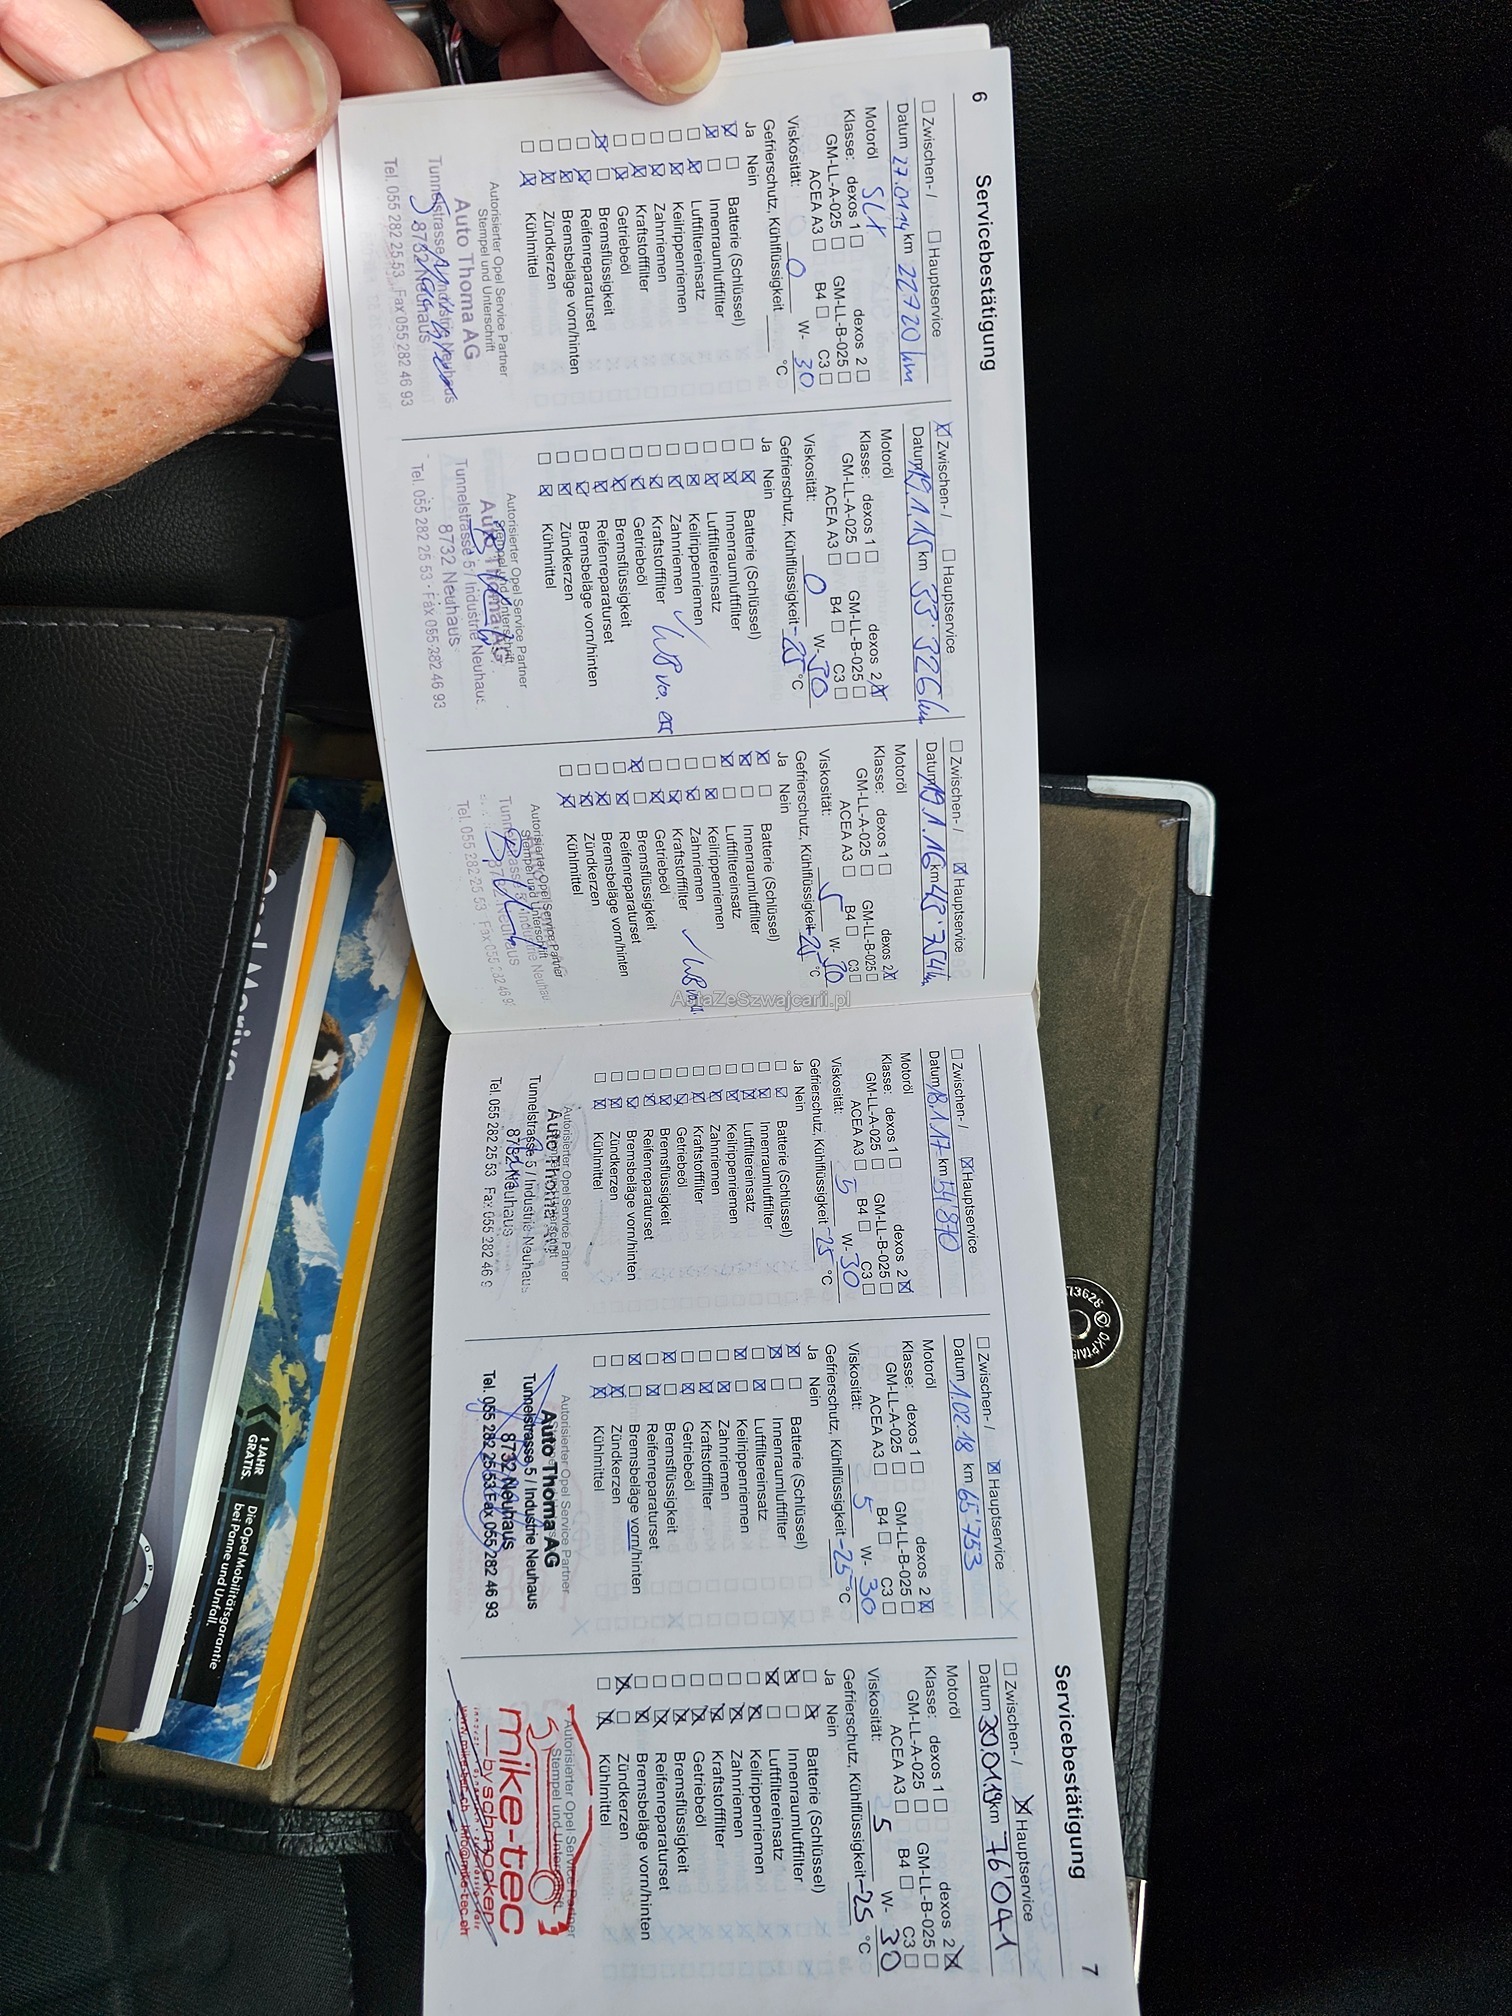 6
Servicebestätigung
☐ Zwischen- / ☐ Hauptservice
Datum 27.01.14 km 22720 km
Motoröl SLX
Klasse: dexos 1 ☐ dexos 2 ☐
GM-LL-A-025 ☐ GM-LL-B-025 ☐
ACEA A3 ☐ B4 ☐ C3 ☐
Viskosität: 0 W- 30
Gefrierschutz, Kühlflüssigkeit °C
Ja Nein
☒ ☐ Batterie (Schlüssel)
☒ ☐ Innenraumluftfilter
☐ ☒ Luftfiltereinsatz
☐ ☒ Keilrippenriemen
☐ ☒ Zahnriemen
☐ ☒ Kraftstofffilter
☐ ☒ Getriebeöl
☒ ☐ Bremsflüssigkeit
☐ ☒ Reifenreparaturset
☐ ☒ Bremsbeläge vorn/hinten
☐ ☒ Zündkerzen
☐ ☒ Kühlmittel
Autorisierter Opel Service Partner
Stempel und Unterschrift
Auto Thoma AG
Tunnelstrasse Industrie Neuhaus
8732 Neuhaus
Tel. 055 282 25 53 Fax 055 282 46 93
☒ Zwischen- / ☐ Hauptservice
Datum 19.1.15 km 33'326 km
Motoröl
Klasse: dexos 1 ☐ dexos 2 ☒
GM-LL-A-025 ☐ GM-LL-B-025 ☐
ACEA A3 ☐ B4 ☐ C3 ☐
Viskosität: 0 W- 30
Gefrierschutz, Kühlflüssigkeit -25 °C
Ja Nein
☐ ☒ Batterie (Schlüssel)
☐ ☒ Innenraumluftfilter
☐ ☒ Luftfiltereinsatz
☐ ☒ Keilrippenriemen
☐ ☒ Zahnriemen
☐ ☒ Kraftstofffilter
☐ ☒ Getriebeöl
☐ ☒ Bremsflüssigkeit
☐ ☒ Reifenreparaturset
☐ ☒ Bremsbeläge vorn/hinten
☐ ☒ Zündkerzen
☐ ☒ Kühlmittel
Autorisierter Opel Service Partner
Stempel und Unterschrift
Auto Thoma AG
Tunnelstrasse 5 / Industrie Neuhaus
8732 Neuhaus
Tel. 055 282 25 53 · Fax 055 282 46 93
☐ Zwischen- / ☒ Hauptservice
Datum 19.1.16 km 43'754 km
Motoröl
Klasse: dexos 1 ☐ dexos 2 ☒
GM-LL-A-025 ☐ GM-LL-B-025 ☐
ACEA A3 ☐ B4 ☐ C3 ☐
Viskosität: 5 W- 30
Gefrierschutz, Kühlflüssigkeit -25 °C
Ja Nein
☒ ☐ Batterie (Schlüssel)
☒ ☐ Innenraumluftfilter
☒ ☐ Luftfiltereinsatz
☐ ☒ Keilrippenriemen
☐ ☒ Zahnriemen
☐ ☒ Kraftstofffilter
☐ ☒ Getriebeöl
☒ ☐ Bremsflüssigkeit
☐ ☒ Reifenreparaturset
☐ ☒ Bremsbeläge vorn/hinten
☐ ☒ Zündkerzen
☐ ☒ Kühlmittel
Autorisierter Opel Service Partner
Stempel und Unterschrift
Tel. 055 282 25 53 Fax 055 282 46 9
AutaZeSzwajcarii.pl
☐ Zwischen- / ☒ Hauptservice
Datum 18.1.17 km 51'870
Motoröl
Klasse: dexos 1 ☐ dexos 2 ☒
GM-LL-A-025 ☐ GM-LL-B-025 ☐
ACEA A3 ☐ B4 ☐ C3 ☐
Viskosität: 5 W- 30
Gefrierschutz, Kühlflüssigkeit -25 °C
Ja Nein
☐ ☒ Batterie (Schlüssel)
☐ ☒ Innenraumluftfilter
☐ ☒ Luftfiltereinsatz
☐ ☒ Keilrippenriemen
☐ ☒ Zahnriemen
☐ ☒ Kraftstofffilter
☐ ☒ Getriebeöl
☐ ☒ Bremsflüssigkeit
☐ ☒ Reifenreparaturset
☐ ☒ Bremsbeläge vorn/hinten
☐ ☒ Zündkerzen
☐ ☒ Kühlmittel
Autorisierter Opel Service Partner
Stempel und Unterschrift
Auto Thoma AG
Tunnelstrasse 5 / Industrie Neuhaus
8732 Neuhaus
Tel. 055 282 25 53 Fax 055 282 46 9
☐ Zwischen- / ☒ Hauptservice
Datum 1.02.18 km 65'753
Motoröl
Klasse: dexos 1 ☐ dexos 2 ☒
GM-LL-A-025 ☐ GM-LL-B-025 ☐
ACEA A3 ☐ B4 ☐ C3 ☐
Viskosität: 5 W- 30
Gefrierschutz, Kühlflüssigkeit -25 °C
Ja Nein
☒ ☐ Batterie (Schlüssel)
☒ ☐ Innenraumluftfilter
☐ ☒ Luftfiltereinsatz
☒ ☐ Keilrippenriemen
☐ ☒ Zahnriemen
☐ ☒ Kraftstofffilter
☐ ☒ Getriebeöl
☒ ☐ Bremsflüssigkeit
☐ ☒ Reifenreparaturset
☒ ☐ Bremsbeläge vorn/hinten
☐ ☒ Zündkerzen
☐ ☒ Kühlmittel
Autorisierter Opel Service Partner
Auto Thoma AG
Tunnelstrasse 5 / Industrie Neuhaus
8732 Neuhaus
Tel. 055 282 25 53 Fax 055 282 46 93
Servicebestätigung
7
☐ Zwischen- / ☒ Hauptservice
Datum 30.01.19 km 76'041
Motoröl
Klasse: dexos 1 ☐ dexos 2 ☒
GM-LL-A-025 ☐ GM-LL-B-025 ☐
ACEA A3 ☐ B4 ☐ C3 ☐
Viskosität: 5 W- 30
Gefrierschutz, Kühlflüssigkeit -25 °C
Ja Nein
☐ ☒ Batterie (Schlüssel)
☒ ☐ Innenraumluftfilter
☒ ☐ Luftfiltereinsatz
☐ ☒ Keilrippenriemen
☐ ☒ Zahnriemen
☐ ☒ Kraftstofffilter
☐ ☒ Getriebeöl
☐ ☒ Bremsflüssigkeit
☐ ☒ Reifenreparaturset
☐ ☒ Bremsbeläge vorn/hinten
☒ ☐ Zündkerzen
☐ ☒ Kühlmittel
Autorisierter Opel Service Partner
Stempel und Unterschrift
mike-tec
by schmucken
www.mike-tec.ch info@mike-tec.ch
Opel Meriva
1 JAHR
GRATIS.
Die Opel Mobilitätsgarantie
bei Panne und Unfall.
OPEL